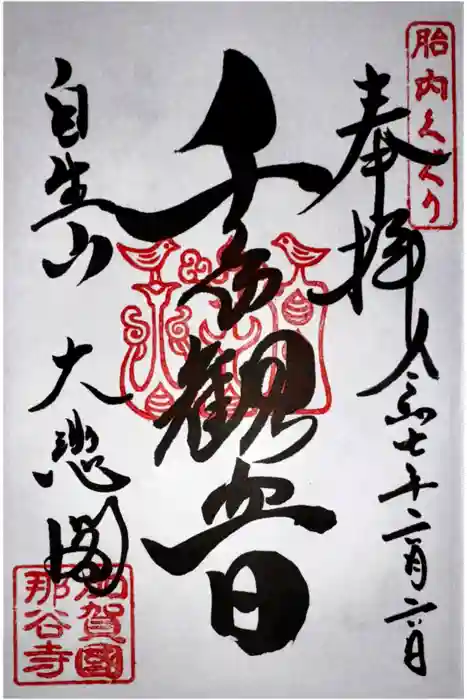 胎内くぐり
奉拝 令和七年二月六日
千手観音
自生山 大悲閣
加賀國
那谷寺